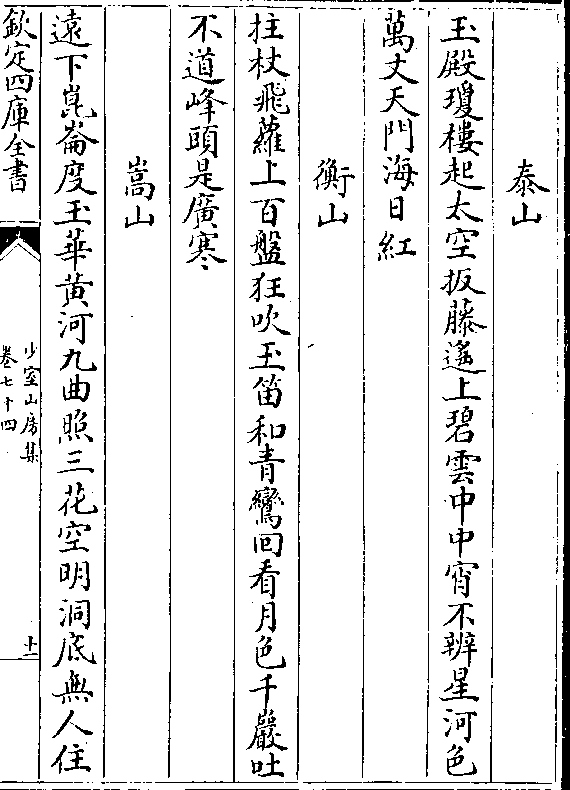 泰山
玉殿瓊樓起太空扳藤遙上碧雲中中宵不辨星河色
萬丈天門海日紅
衡山
拄杖飛蘿上百盤狂吹玉笛和青鸞回看月色千巖吐
不道峰頭是廣寒
嵩山
遠下崑崙度玉華黄河九曲照三花空明洞底無人住
欽定四庫全書
少室山房集
卷七十四
十一